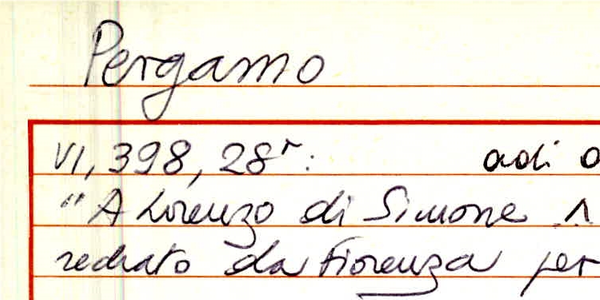 Pergamo
VI, 398, 28r: adi
"A Lorenzo di Simone 1
redato da Fiorenza per